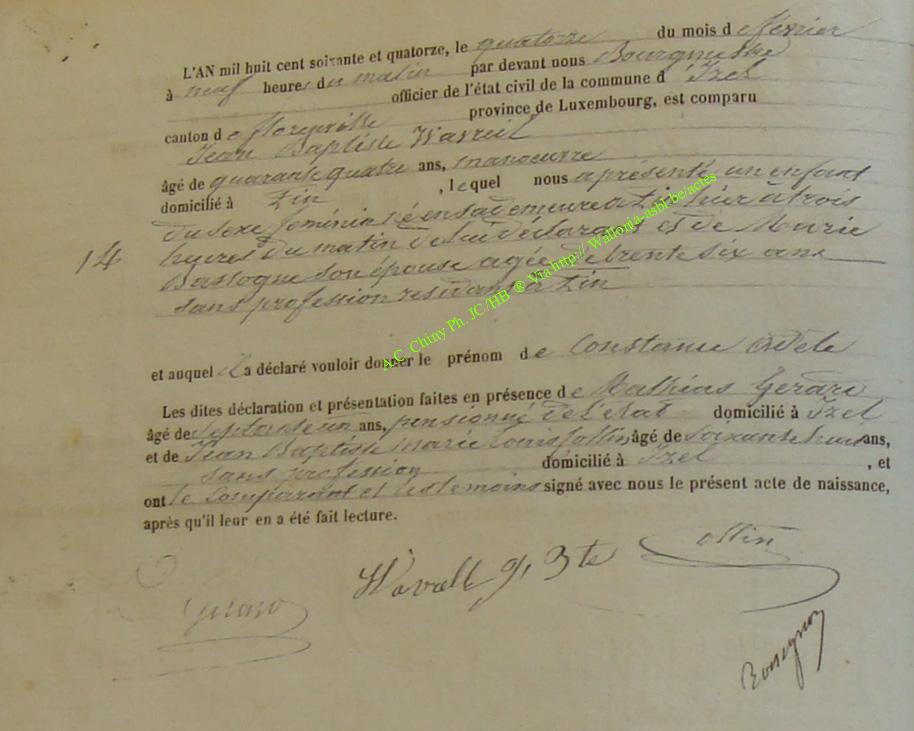 L'AN mil huit cent soixante et quatorze, le quatorze du mois de février
à neuf heures du matin par devant nous Bourgmestre
officier de l'état civil de la commune d'Izel
canton de florenville province de Luxembourg, est comparu
Jean Baptiste
âgé de quarante quatre ans, manoeuvre
domicilié à Pin, lequel nous a présenté un enfant
du sexe féminin né en sa demeure à Pin hier à trois
14 heures du matin de lui déclarant et de Marie
Bastogne son épouse agée de trente six ans
sans profession residant à Pin
A.C. Chiny Ph. JC/HB ® Via http:// Wallonia-asbl.be/actes
et auquel il a déclaré vouloir donner le prénom de Constance Adèle
Les dites déclaration et présentation faites en présence de Mathias Gerard
âgé de septante un ans, pensionné de l'etat domicilié à Izel
et de Jean Baptiste Marie Louis Collin âgé de soixante ans,
sans profession domicilié à Izel, et
ont le Comparant et les temoins signé avec nous le présent acte de naissance,
après qu'il leur en a été fait lecture.
Gerard J, Bte Collin
Rossignon